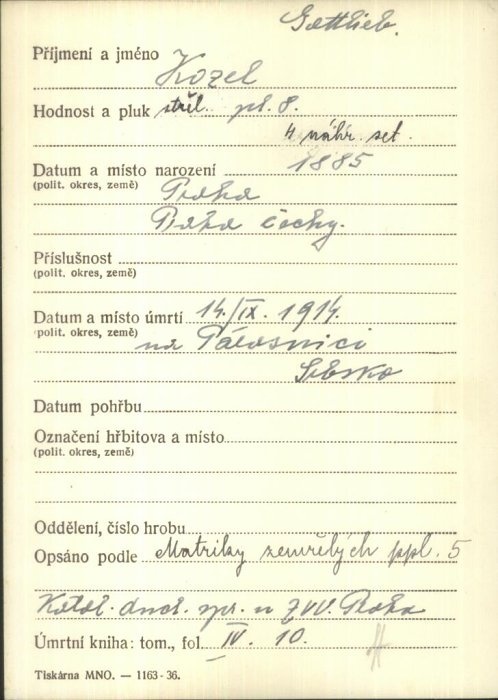 Gottlieb.
Příjmení a jméno Kozel
Hodnost a pluk střel. pl. 8.
4 náhr. set.
Datum a místo narození 1885
(polit. okres, země) Praha
Praha Čechy.
Příslušnost
(polit. okres, země)
Datum a místo úmrtí 14./IX. 1914.
(polit. okres, země) na
Srbsko
Datum pohřbu
Označení hřbitova a místo
(polit. okres, země)
Oddělení, číslo hrobu
Opsáno podle Matriky zemřelých ppl. 5
Katol. duch. spr. u ZVV. Praha
Úmrtní kniha: tom., fol. IV. 10.
Tiskárna MNO. — 1163-36.